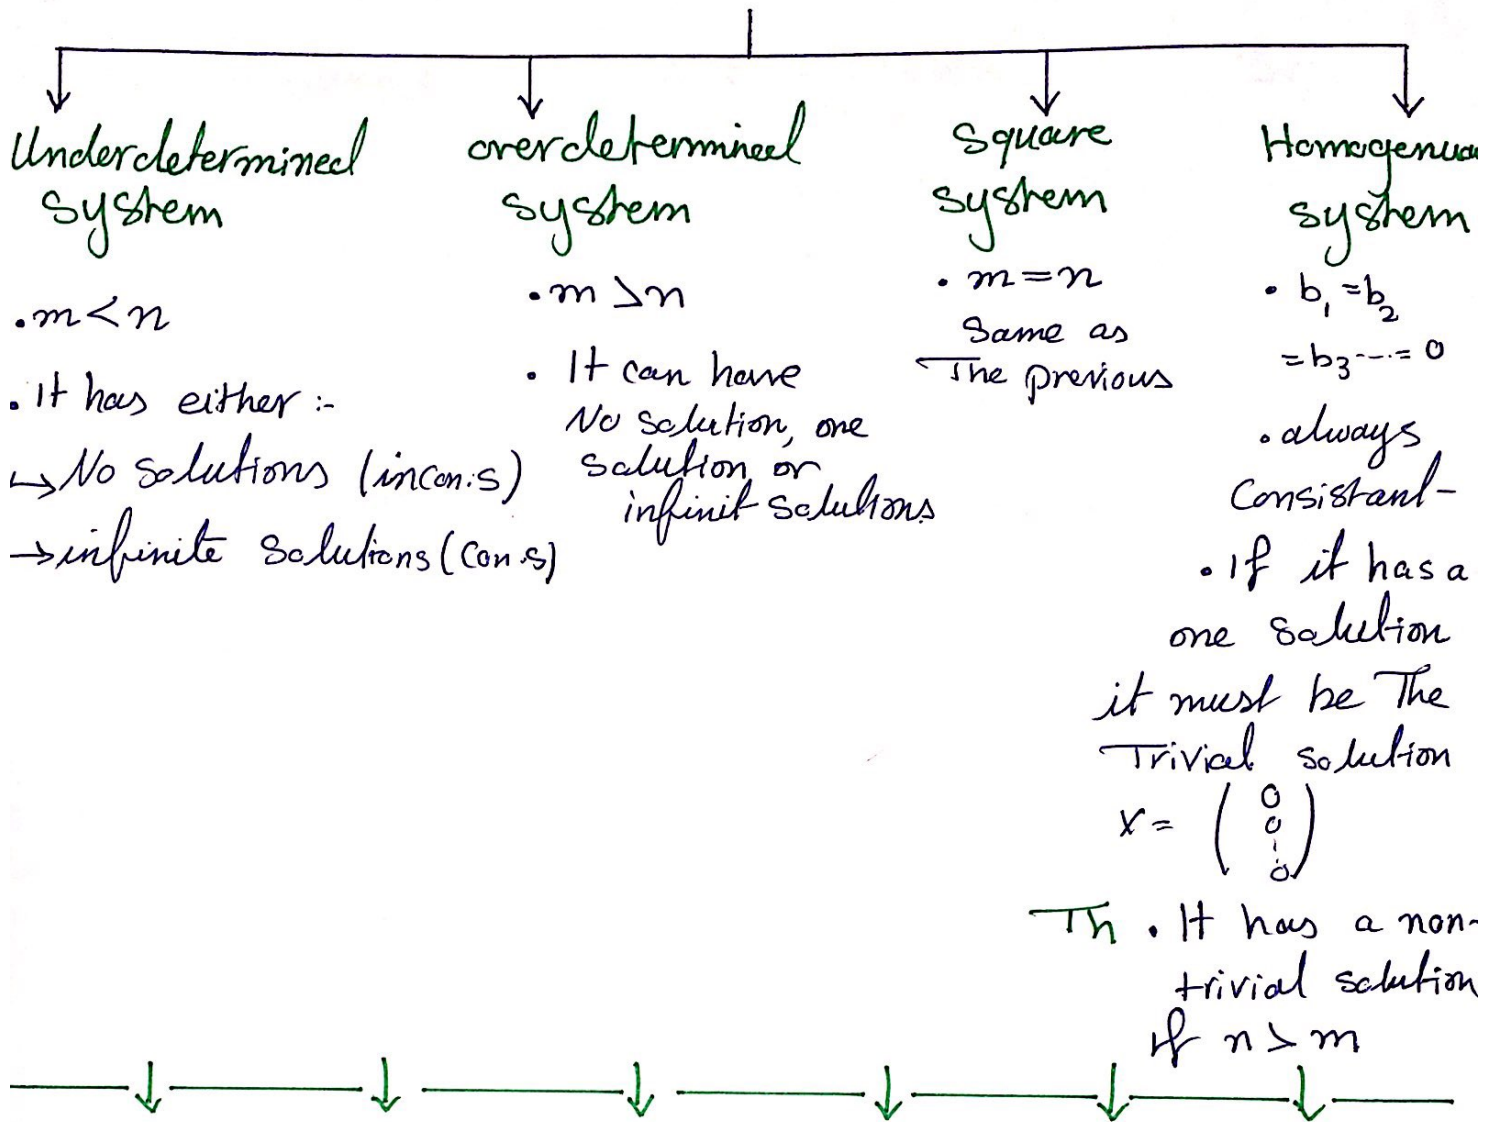 Underdetermined
system
.m<n
. It has either :-
↳ No solutions (incon.s)
→ infinite solutions (con.s)
overdetermined
system
. m > n
. It can have
No solution, one
solution or
infinit solutions
square
system
. m = n
Same as
The previous
system
. b₁ = b₂
= b₃ ---- = 0
. always
Consistant-
. If it has a
one solution
it must be The
Trivial solution
X = ( 0
0
0 )
Th . It has a non-
trivial solution
if n > m